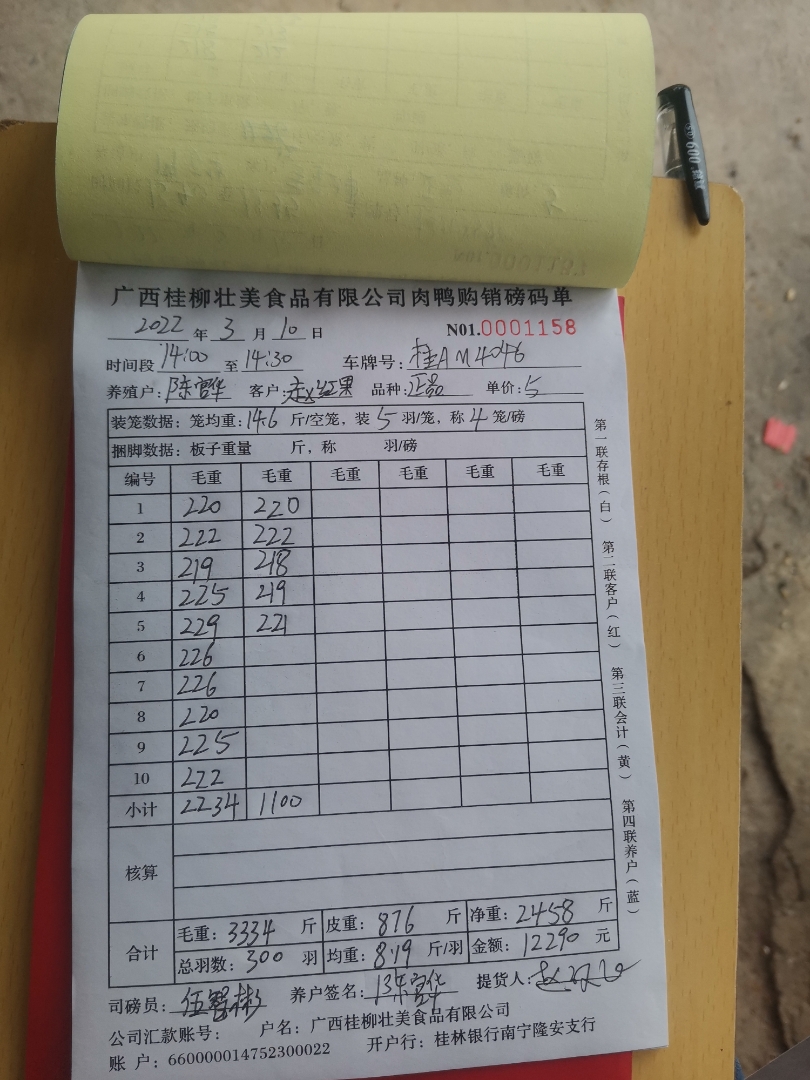 广西桂柳壮美食品有限公司肉鸭购销磅码单
2022 年 3 月 10 日 N01.0001158
时间段 14:00 至 14:30 车牌号: 桂AM4046
养殖户: 陈宫华 客户: 赵红果 品种: 正品 单价: 5
装笼数据: 笼均重: 14.6 斤/空笼, 装 5 羽/笼, 称 4 笼/磅
捆脚数据: 板子重量 斤, 称 羽/磅
编号 毛重 毛重 毛重 毛重 毛重 毛重
1 220 220
2 222 222
3 219 218
4 225 219
5 229 221
6 226
7 226
8 220
9 225
10 222
小计 2234 1100
核算
合计
毛重: 3334 斤 皮重: 876 斤 净重: 2458 斤
总羽数: 300 羽 均重: 8.19 斤/羽 金额: 12290 元
司磅员: 养户签名: 提货人:
公司汇款账号: 户名: 广西桂柳壮美食品有限公司
账 户: 660000014752300022 开户行: 桂林银行南宁隆安支行
第一联存根(白)
第二联客户(红)
第三联会计(黄)
第四联养户(蓝)
600